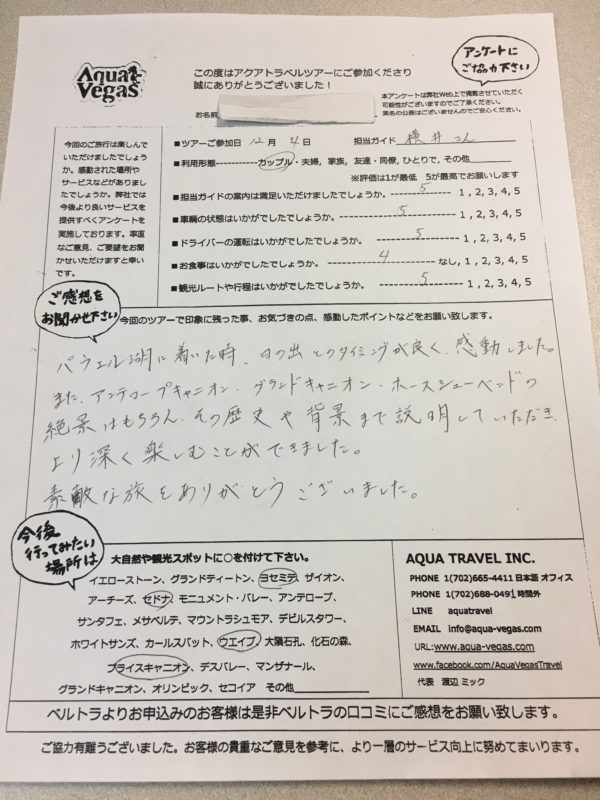 Aqua Vegas
この度はアクアトラベルツアーにご参加くださり
誠にありがとうございました！
アンケートに
ご協力下さい
本アンケートは弊社Web上で掲載させていただく
可能性がございますのでご了承ください。
実名の公表はございませんのでご安心ください。
お名前
今回のご旅行は楽しんで
いただけましたでしょう
か。感動された場所や
サービスなどがありまし
たでしょうか。弊社では
今後より良いサービスを
提供すべくアンケートを
実施しております。率直
なご意見、ご要望をお聞
かせいただけますと幸い
です。
■ツアーご参加日 12月 4日 担当ガイド 横井さん
■利用形態-----------カップル・夫婦、家族、友達・同僚、ひとりで、その他
※評価は1が最低 5が最高でお願いします
■担当ガイドの案内は満足いただけましたでしょうか。 5 1, 2, 3, 4, 5
■車輌の状態はいかがでしたでしょうか。 5 1, 2, 3, 4, 5
■ドライバーの運転はいかがでしたでしょうか。 5 1, 2, 3, 4, 5
■お食事はいかがでしたでしょうか。 4 なし, 1, 2, 3, 4, 5
■観光ルートや行程はいかがでしたでしょうか。 5 1, 2, 3, 4, 5
ご感想を
お聞かせ下さい
今回のツアーで印象に残った事、お気づきの点、感動したポイントなどをお願い致します。
パウエル湖に着いた時、日の出とのタイミングが良く、感動しました。
また、アンテロープキャニオン・グランドキャニオン・ホースシューベンドの
絶景はもちろん、その歴史や背景まで説明していただき、
より深く楽しむことができました。
素敵な旅をありがとうございました。
今後
行ってみたい
場所は
大自然や観光スポットに○を付けて下さい。
イエローストーン、グランドティートン、ヨセミテ、ザイオン、
アーチーズ、セドナ、モニュメント・バレー、アンテロープ、
サンタフェ、メサベルテ、マウントラシュモア、デビルスタワー、
ホワイトサンズ、カールスバット、ウエイブ、大隕石孔、化石の森、
ブライスキャニオン、デスバレー、マンザナール、
グランドキャニオン、オリンピック、セコイア その他
AQUA TRAVEL INC.
PHONE 1(702)665-4411 日本語 オフィス
PHONE 1(702)688-0491 時間外
LINE aquatravel
EMAIL info@aqua-vegas.com
URL:www.aqua-vegas.com
www.facebook.com/AquaVegasTravel
代表 渡辺 ミック
ベルトラよりお申込みのお客様は是非ベルトラの口コミにご感想をお願い致します。
ご協力有難うございました。お客様の貴重なご意見を参考に、より一層のサービス向上に努めてまいります。